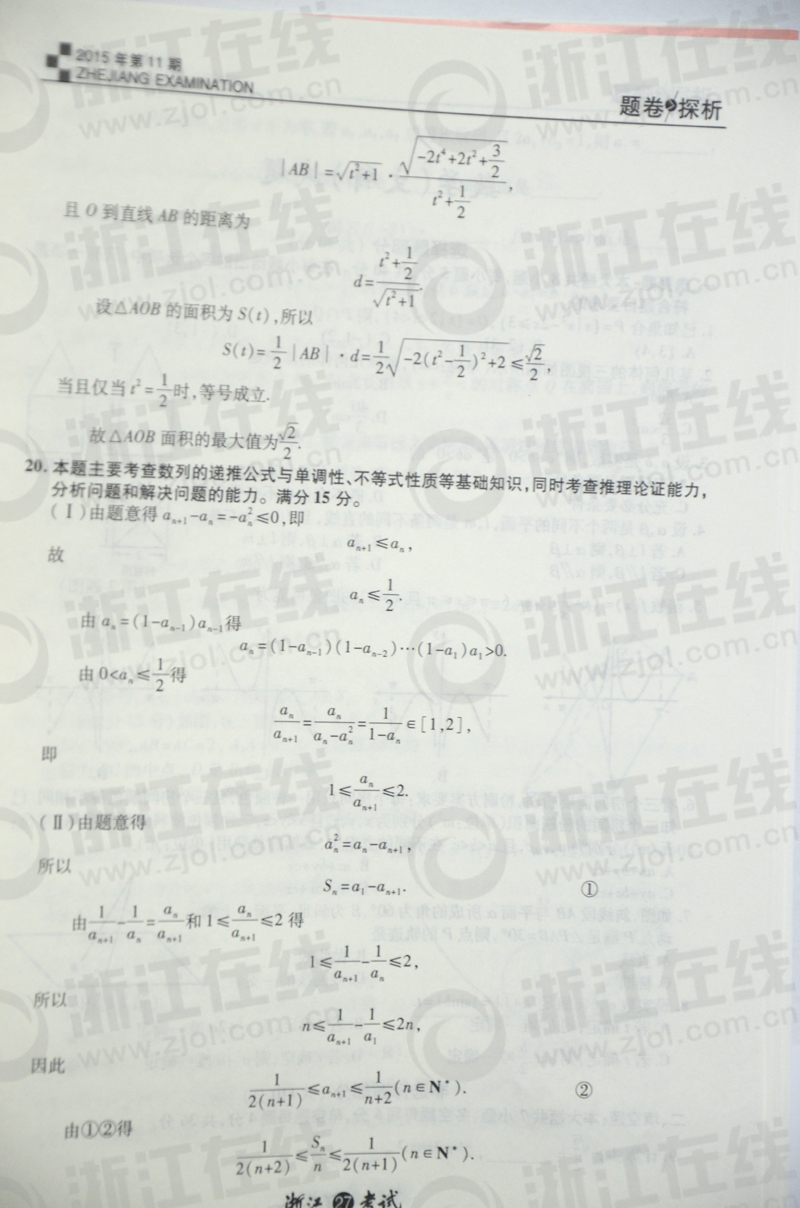 2015 年第 11 期
ZHEJIANG EXAMINATION
题卷 探析
|AB|=√(t²+1) · √(-2t⁴+2t²+3/2) / (t²+1/2),
且 O 到直线 AB 的距离为
d=(t²+1/2)/√(t²+1).
设△AOB 的面积为 S(t),所以
S(t)=1/2|AB|·d=1/2√(-2(t²-1/2)²+2)≤√2/2,
当且仅当 t²=1/2时,等号成立.
故△AOB 面积的最大值为√2/2.
20. 本题主要考查数列的递推公式与单调性、不等式性质等基础知识,同时考查推理论证能力,
分析问题和解决问题的能力。满分 15 分。
(Ⅰ)由题意得 aₙ₊₁-aₙ=-aₙ²≤0,即
aₙ₊₁≤aₙ,
故
aₙ≤1/2.
由 aₙ=(1-aₙ₋₁)aₙ₋₁得
aₙ=(1-aₙ₋₁)(1-aₙ₋₂)…(1-a₁)a₁>0.
由 0<aₙ≤1/2得
aₙ/aₙ₊₁=aₙ/(aₙ-aₙ²)=1/(1-aₙ)∈[1,2],
即
1≤aₙ/aₙ₊₁≤2.
(Ⅱ)由题意得
aₙ²=aₙ-aₙ₊₁,
所以
Sₙ=a₁-aₙ₊₁. ①
由1/aₙ₊₁-1/aₙ=aₙ/aₙ₊₁和 1≤aₙ/aₙ₊₁≤2 得
1≤1/aₙ₊₁-1/aₙ≤2,
所以
n≤1/aₙ₊₁-1/a₁≤2n,
因此
1/(2(n+1))≤aₙ₊₁≤1/(n+2)(n∈N*). ②
由①②得
1/(2(n+2))≤Sₙ/n≤1/(2(n+1))(n∈N*).
浙江 27 考试
浙江在线
www.zjol.com.cn